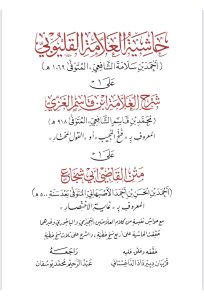 حاشية العلامة القليوبي
(أحمد بن سلامة الشافعي، المتوفى ١٠٦٩ هـ)
على
شرح العلامة ابن قاسم الغزي
(محمد بن قاسم الشافعي، المتوفى ٩١٨ هـ)
المعروف بـ «فتح القريب المجيب» أو «القول المختار»
على
متن القاضي أبي شجاع
(أحمد بن الحسن بن أحمد الأصبهاني، المتوفى بعد سنة ٥٠٠ هـ)
المعروف بـ «غاية الاختصار»
حققه وعلق عليه
راجعه
عبد الرحيم محمد يوسفان